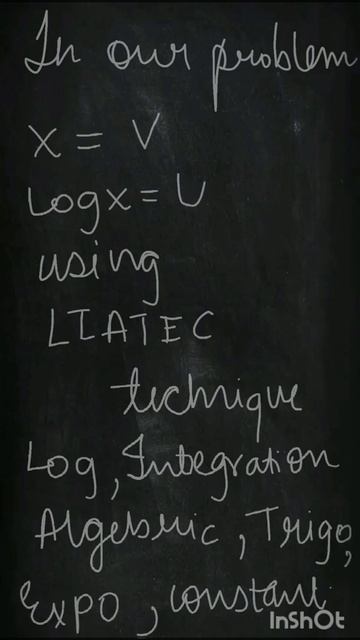 In our problem
x = V
Logx = U
using
LIATEC
technique
Log, Integration
Algebric, Trigo,
Expo, constant
InShOt